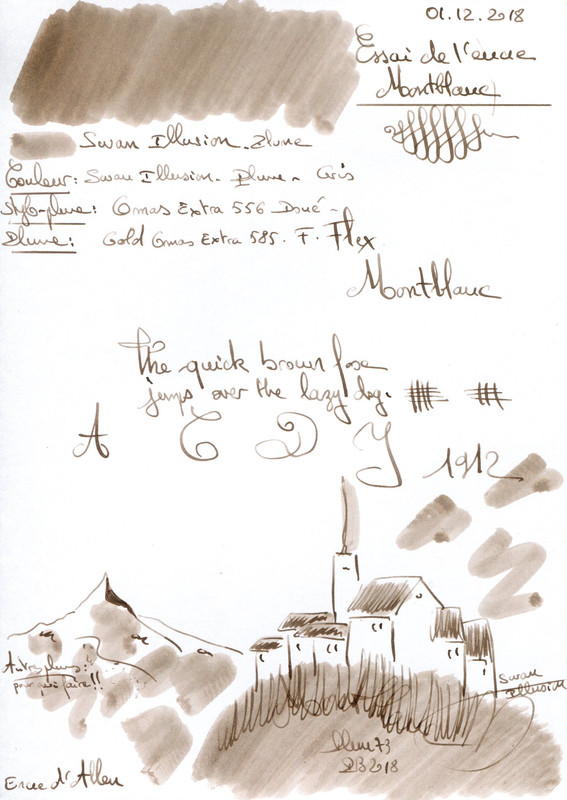 01.12.2018
Essai de l'encre
Montblanc
Swan Illusion. Plume
Couleur: Swan Illusion. Plume - Gris
Stylo-plume: Omas Extra 556 Doué -
Plume: Gold Omas Extra 585. F. Flex
Montblanc
The quick brown fox
jumps over the lazy dog.
A C D Y 1912
Autres plumes:
pour quoi faire!!
Swan
Illusion
Plume73
2018
Encre d'Allen